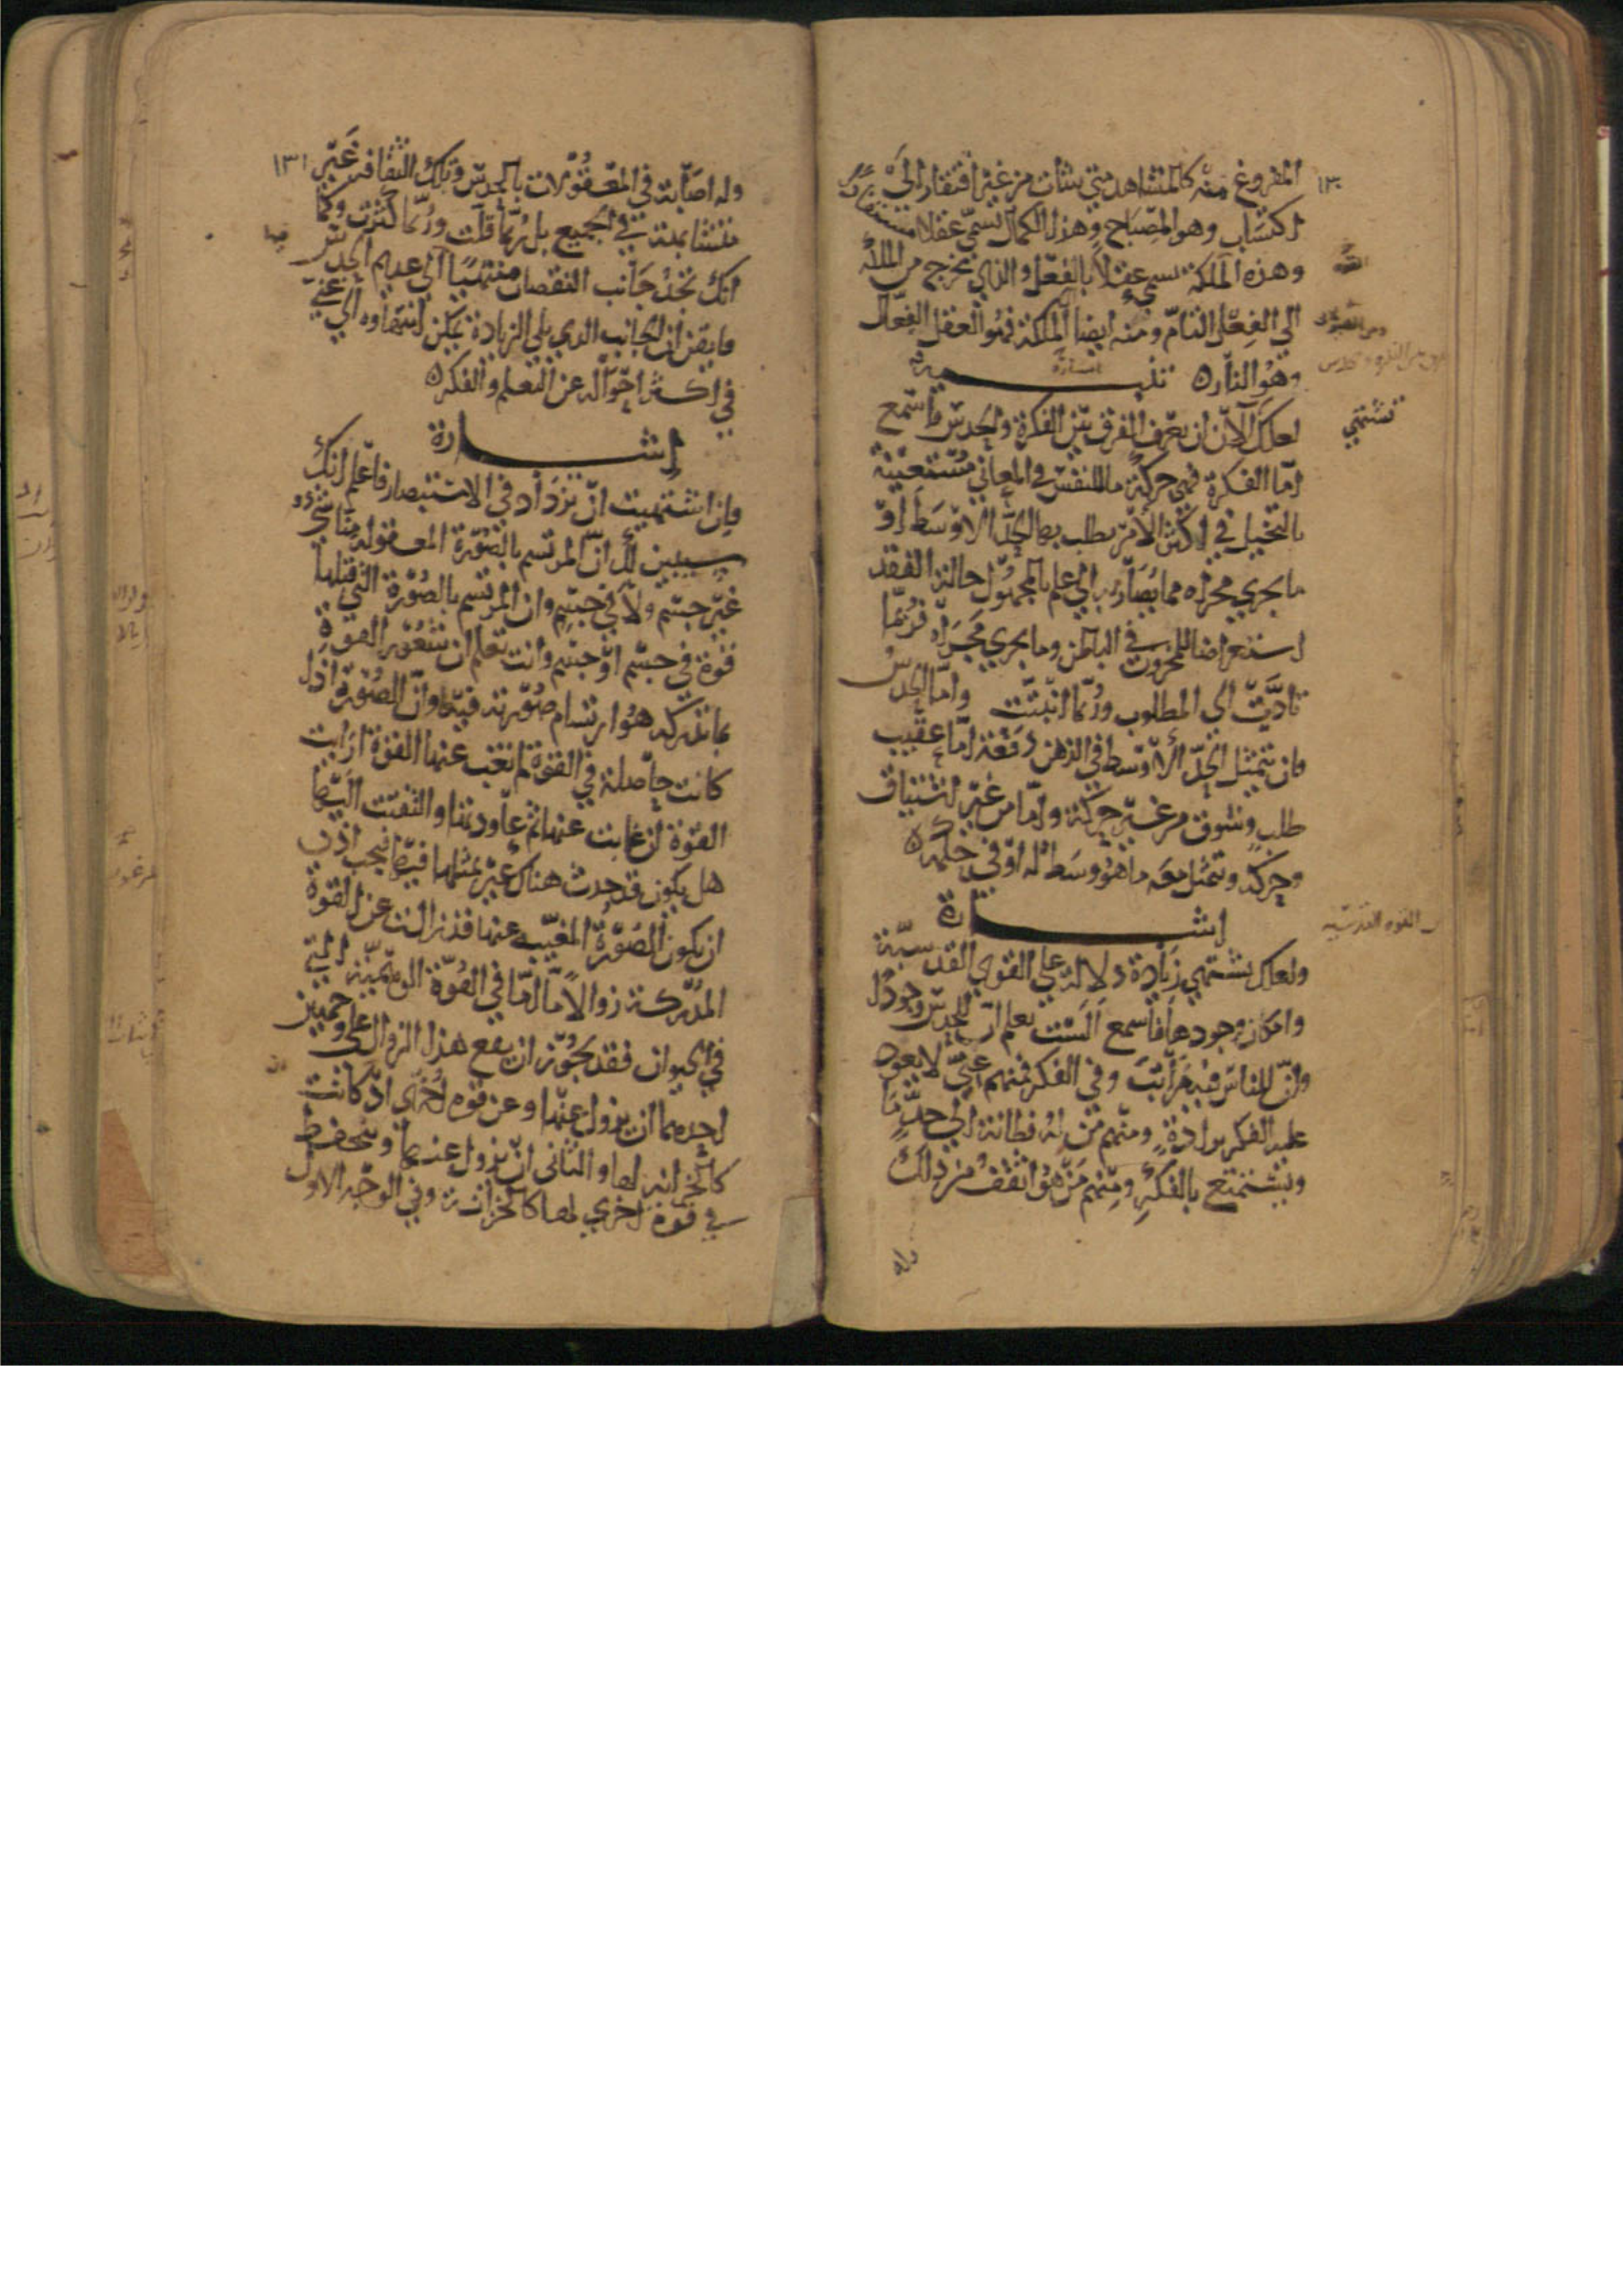 ١٣٠
المفروغ منه كالمشاهد متى شات من غير افتقار الى
اكتساب وهو المصباح وهذا الكمال تسمى عقلا مستفادا
وهذه الملكة تسمى عقلا بالفعل والذي يخرج من الملكة
الى الفعل التام ومنه ايضا الملكة فهو العقل الفعال
وهو النار ه تنبيه
اشارة
لعلك الآن ان تعرف الفرق بين الفكرة والحدس فاسمع
تشتهي
اما الفكرة فهي حركة ما للنفس في المعاني مستعينة
بالتخيل في اكثر الامر يطلب بها الحد الاوسط او
ما يجري مجراه مما يصار به الى علم بالمجهول حالة الفقد
استعراضا للمخزون في الباطن وما يجري مجراه فربما
تادت الى المطلوب وربما انبتت واما الحدس
فان تتمثل الحد الاوسط في الذهن دفعة اما عقيب
طلب وشوق من غير حركة واما من غير اشتياق
وحركة وتتمثل معه ما هو وسط له او في حكمه ه
اشارة
ولعلك تشتهي زيادة دلالة على القوى القدسية
وامكان وجودها فاسمع الست تعلم ان للحدس وجودا
وان للناس فيه مراتب وفي الفكر فمنهم غبي لا يعود
عليه الفكر برادة ومنهم من له فطانة الى حد ما
ويستمتع بالفكر ومنهم من هو اثقف من ذلك
وله
القوة القدسيه
١٣١
وله اصابة في المعقولات بالحدس وتلك الثقافة غير
متشابهة في الجميع بل ربما قلت وربما كثرت وكما
انك تجد جانب النقصان منتهيا الى عديم الحدس
فايقن ان الجانب الذي يلي الزيادة يمكن انتهاوه الى غني
في اكثر احواله عن التعلم والفكره
اشارة
فان اشتهيت ان تزداد في الاستبصار فاعلم انك
سيبين لك ان المرتسم بالصورة المعقولة منا شيء
غير جسم ولا في جسم وان المرتسم بالصورة التي قبلها
قوة في جسم او جسم وانت تعلم ان شعور القوة
بما تدركه هو ارتسام صورته فيها وان الصورة اذا
كانت حاصلة في القوة لم تغب عنها القوة ارايت
القوة ان غابت عنها ثم عاودتها والتفتت اليها
هل يكون قد حدث هناك غير تمثلها فيها فيجب اذن
ان يكون الصورة المغيبه عنها قد زالت عن القوة
المدركة زوالا ما اما في القوة الوهمية التي
في الحيوان فقد يجوز ان يقع هذا الزوال على وجهين
احدهما ان يزول عنها وعن قوه اخرى ان كانت
كالخزانه لها والثاني ان يزول عنها وينحفظ
في قوة اخرى لها كالخزانة وفي الوجه الاول